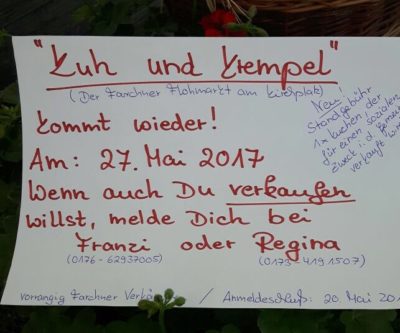 "Kuh und Krempel"
(Der Farchner Flohmarkt am Kirchplatz)
kommt wieder!
Am: 27. Mai 2017
Wenn auch Du verkaufen
willst, melde Dich bei
Franzi oder Regina
(0176-62937005) (0173-4191507)
vorrangig Farchner / Anmeldeschluß: 20. Mai
Neu!
Standgebühr
1x Kuchen der
für einen sozialen
Zweck i.d.
verkauft